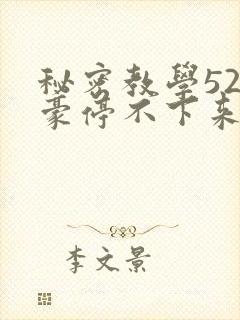 秘密教學52子
豪停不下來
李文景